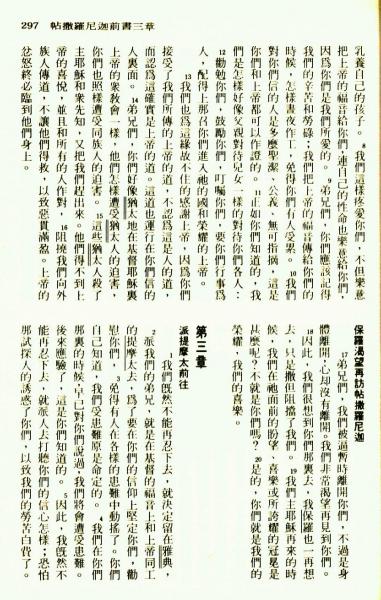 297 帖撒羅尼迦前書三章
乳養自己的孩子。8我們這樣疼愛你們,不但樂意
把上帝的福音給你們,連自己的性命也樂意給你們,
因爲你們是我們所愛的。9弟兄們,你們應該記得
我們的辛苦和勞碌;我們把上帝的福音傳給你們的
時候,怎樣晝夜作工,免得你們有人受累。10我們
對你們信的人是多麼聖潔、公義、無可指摘,這是
你們和上帝都可以作證的。11正如你們知道的,我
們是怎樣好像父親對待兒女一樣的對待你們各人:
12勸勉你們,鼓勵你們,叮囑你們,要你們行事爲
人,配得上那召你們進入祂的國和榮耀的上帝。
13我們也爲這緣故不住的感謝上帝,因爲你們
接受了我們所傳的上帝的道,不認爲這是人的道,
而認爲這確實是上帝的道。這道也運行在你們信的
人裏面。14弟兄們,你們好像猶太地在基督耶穌裏
上帝的衆教會一樣,他們怎樣遭受猶太人的迫害,
你們也照樣遭受同族人的迫害。15這些猶太人殺了
主耶穌和衆先知,又把我們趕出來。他們得不到上
帝的喜悅,並且和所有的人作對,16阻撓我們向外
族人傳道,不讓他們得救,以致惡貫滿盈。上帝的
忿怒終必臨到他們身上。
保羅渴望再訪帖撒羅尼迦
17弟兄們,我們被逼暫時離開你們,不過是身
體離開,心却沒有離開。我們非常渴望再見到你們。
18因此,我們很想到你們那裏去,我保羅也一再想
去,只是撒但阻擋了我們。19我們主耶穌再來的時
候,我們在祂面前的盼望、喜樂或所誇耀的冠冕是
甚麼呢?不就是你們嗎?20是的,你們就是我們的
榮耀,我們的喜樂。
第三章
派提摩太前往
1我們旣然不能再忍下去,就決定留在雅典,
2派我們的弟兄,就是在基督的福音上和上帝同工
的提摩太去,爲了要在你們的信仰上堅定你們,勸
勉你們,3免得有人在各樣的患難中動搖了。你們
自己知道,我們受患難原是命定的。4我們在你們
那裏的時候,早已對你們說過,我們將會遭受患難。
後來應驗了,這是你們知道的。5因此,我旣然不
能再忍下去,就派人去打聽你們的信心怎樣;恐怕
那試探人的誘惑了你們,以致我們的勞苦白費了。